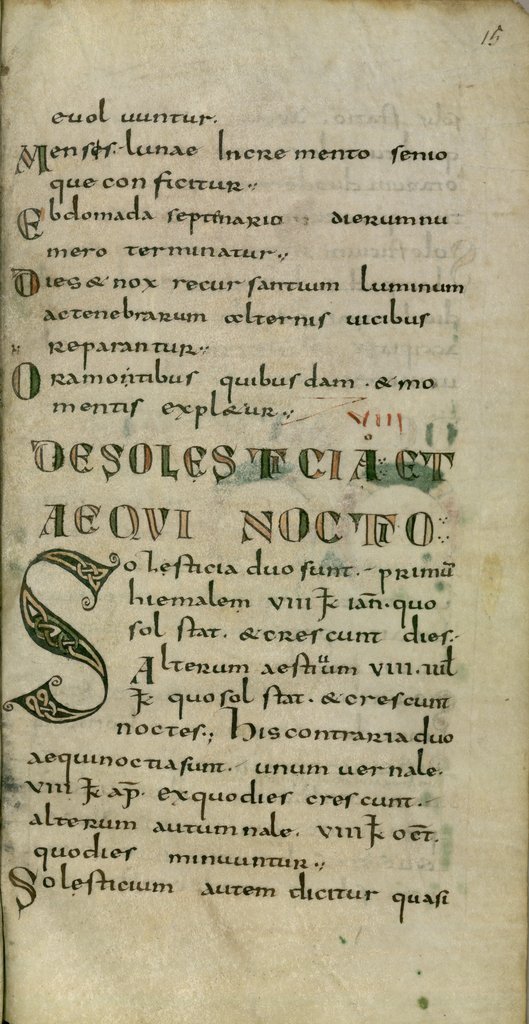 15
euoluuntur.
Menses. lunae Incremento senio
que conficitur.,
Ebdomada septinario dierum nu
mero terminatur.,
Dies & nox recursantium luminum
ac tenebrarum alternis uicibus
reparantur.,
Ora montibus quibusdam. & mo
mentis expletur.,
VIII
DE SOLESTICIA ET
AEQUINOCTIO
Solesticia duo sunt. primū
hiemalem VIII K̄ ian̄. quo
sol stat. & crescunt dies.
Alterum aestiuum VIII. iul̄
K̄ quo sol stat. & crescunt
noctes.; his contraria duo
aequinoctia sunt. unum uernale.
VIII K̄ ap̄. ex quo dies crescunt.
alterum autumnale. VIII K̄ oct̄.
quo dies minuuntur.,
Solesticium autem dicitur quasi